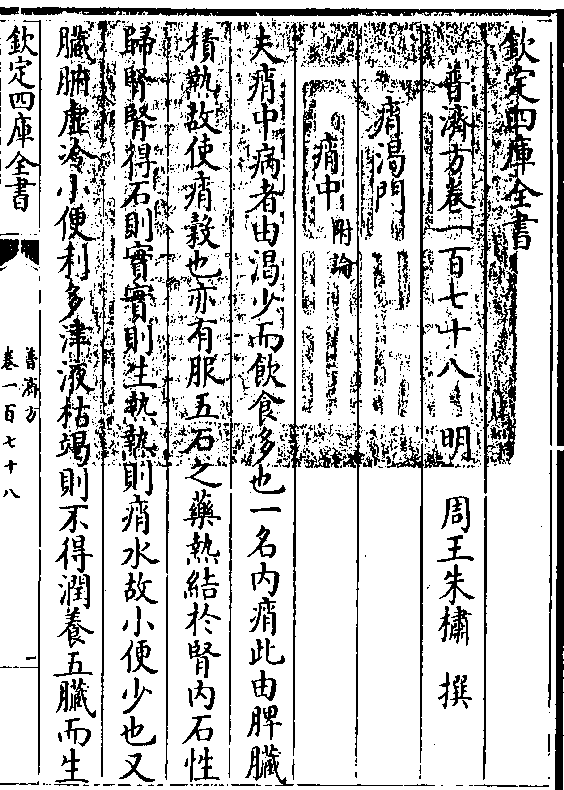 欽定四庫全書
普濟方卷一百七十八 明 周王朱橚 撰
痟渴門
痟中附論
夫痟中病者由渴少而飲食多也一名内痟此由脾臟
積熱故使痟穀也亦有服五石之藥熱結於腎内石性
歸腎腎得石則實實則生熱熱則痟水故小便少也又
臟腑虛冷小便利多津液枯竭則不得潤養五臟而生
欽定四庫全書
普濟方
卷一百七十八
一